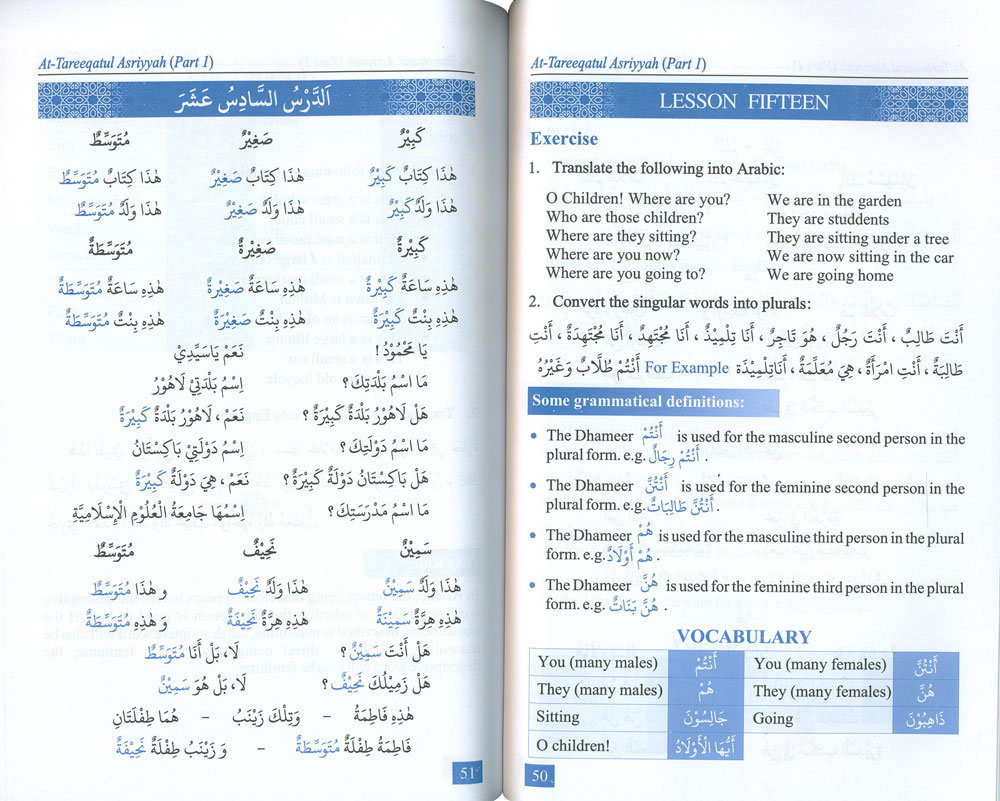 At-Tareeqatul Asriyyah (Part 1)
LESSON FIFTEEN
Exercise
1. Translate the following into Arabic:
O Children! Where are you? We are in the garden
Who are those children? They are studdents
Where are they sitting? They are sitting under a tree
Where are you now? We are now sitting in the car
Where are you going to? We are going home
2. Convert the singular words into plurals:
أَنْتَ طَالِبٌ ، أَنْتَ رَجُلٌ ، هُوَ تَاجِرٌ ، أَنَا تِلْمِيْذٌ ، أَنَا مُجْتَهِدٌ ، أَنَا مُجْتَهِدَةٌ ، أَنْتِ
طَالِبَةٌ ، أَنْتِ امْرَأَةٌ ، هِيَ مُعَلِّمَةٌ ، أَنَاتِلْمِيْذَة For Example أَنْتُمْ طُلَّابٌ وَغَيْرُهُ
Some grammatical definitions:
• The Dhameer أَنْتُمْ is used for the masculine second person in the
plural form. e.g. أَنْتُمْ رِجَالٌ .
• The Dhameer أَنْتُنَّ is used for the feminine second person in the
plural form. e.g. أَنْتُنَّ طَالِبَاتٌ .
• The Dhameer هُمْ is used for the masculine third person in the plural
form. e.g. هُمْ أَوْلَادٌ .
• The Dhameer هُنَّ is used for the feminine third person in the plural
form. e.g. هُنَّ بَنَاتٌ .
VOCABULARY
You (many males) أَنْتُمْ You (many females) أَنْتُنَّ
They (many males) هُمْ They (many females) هُنَّ
Sitting جَالِسُوْنَ Going ذَاهِبُوْنَ
O children! أَيُّهَا الْأَوْلَادُ
50
At-Tareeqatul Asriyyah (Part 1)
اَلدَّرْسُ السَّادِسُ عَشَرَ
كَبِيْرٌ صَغِيْرٌ مُتَوَسِّطٌ
هٰذَا كِتَابٌ كَبِيْرٌ هٰذَا كِتَابٌ صَغِيْرٌ هٰذَا كِتَابٌ مُتَوَسِّطٌ
هٰذَا وَلَدٌ كَبِيْرٌ هٰذَا وَلَدٌ صَغِيْرٌ هٰذَا وَلَدٌ مُتَوَسِّطٌ
كَبِيْرَةٌ صَغِيْرَةٌ مُتَوَسِّطَةٌ
هٰذِهِ سَاعَةٌ كَبِيْرَةٌ هٰذِهِ سَاعَةٌ صَغِيْرَةٌ هٰذِهِ سَاعَةٌ مُتَوَسِّطَةٌ
هٰذِهِ بِنْتٌ كَبِيْرَةٌ هٰذِهِ بِنْتٌ صَغِيْرَةٌ هٰذِهِ بِنْتٌ مُتَوَسِّطَةٌ
يَا مَحْمُوْدُ ! نَعَمْ يَاسَيِّدِيْ
مَا اسْمُ بَلْدَتِكَ ؟ اِسْمُ بَلْدَتِيْ لَاهُوْرُ
هَلْ لَاهُوْرُ بَلْدَةٌ كَبِيْرَةٌ ؟ نَعَمْ ، لَاهُوْرُ بَلْدَةٌ كَبِيْرَةٌ
مَا اسْمُ دَوْلَتِكَ ؟ اِسْمُ دَوْلَتِيْ بَاكِسْتَانُ
هَلْ بَاكِسْتَانُ دَوْلَةٌ كَبِيْرَةٌ ؟ نَعَمْ ، هِيَ دَوْلَةٌ كَبِيْرَةٌ
مَا اسْمُ مَدْرَسَتِكَ ؟ اِسْمُهَا جَامِعَةُ الْعُلُوْمِ الْإِسْلَامِيَّةِ
سَمِيْنٌ نَحِيْفٌ مُتَوَسِّطٌ
هٰذَا وَلَدٌ سَمِيْنٌ هٰذَا وَلَدٌ نَحِيْفٌ و هٰذَا مُتَوَسِّطٌ
هٰذِهِ هِرَّةٌ سَمِيْنَةٌ هٰذِهِ هِرَّةٌ نَحِيْفَةٌ وَ هٰذِهِ مُتَوَسِّطَةٌ
هَلْ أَنْتَ سَمِيْنٌ ؟ لَا، بَلْ أَنَا مُتَوَسِّطٌ
هَلْ زَمِيْلُكَ نَحِيْفٌ ؟ لَا، بَلْ هُوَ سَمِيْنٌ
هٰذِهِ فَاطِمَةُ – وَتِلْكَ زَيْنَبُ – هُمَا طِفْلَتَانِ
فَاطِمَةُ طِفْلَةٌ مُتَوَسِّطَةٌ – وَ زَيْنَبُ طِفْلَةٌ نَحِيْفَةٌ
51